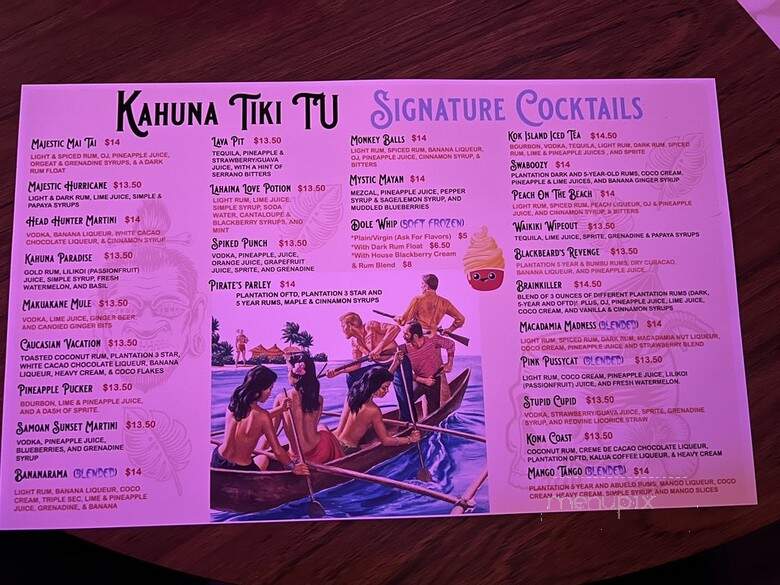 KAHUNA TIKI TU SIGNATURE COCKTAILS
MAJESTIC MAI TAI $14
LIGHT & SPICED RUM, OJ, PINEAPPLE JUICE,
ORGEAT & GRENADINE SYRUPS, & A DARK
RUM FLOAT
MAJESTIC HURRICANE $13.50
LIGHT & DARK RUM, LIME JUICE, SIMPLE &
PAPAYA SYRUPS
HEAD HUNTER MARTINI $14
VODKA, BANANA LIQUEUR, WHITE CACAO
CHOCOLATE LIQUEUR, & CINNAMON SYRUP
KAHUNA PARADISE $13.50
GOLD RUM, LILIKOI (PASSIONFRUIT)
JUICE, SIMPLE SYRUP, FRESH
WATERMELON, AND BASIL
MAKUAKANE MULE $13.50
VODKA, LIME JUICE, GINGER BEER
AND CANDIED GINGER BITS
CAUCASIAN VACATION $13.50
TOASTED COCONUT RUM, PLANTATION 3 STAR,
WHITE CACAO CHOCOLATE LIQUEUR, BANANA
LIQUEUR, HEAVY CREAM, & COCO FLAKES
PINEAPPLE PUCKER $13.50
BOURBON, LIME & PINEAPPLE JUICE,
AND A DASH OF SPRITE.
SAMOAN SUNSET MARTINI $13.50
VODKA, PINEAPPLE JUICE,
BLUEBERRIES, AND GRENADINE
SYRUP
BANANARAMA (BLENDED) $14
LIGHT RUM, BANANA LIQUEUR, COCO
CREAM, TRIPLE SEC, LIME & PINEAPPLE
JUICE, GRENADINE, & BANANA
LAVA PIT $13.50
TEQUILA, PINEAPPLE &
STRAWBERRY/GUAVA
JUICE, WITH A HINT OF
SERRANO BITTERS
LAHAINA LOVE POTION $13.50
LIGHT RUM, LIME JUICE,
SIMPLE SYRUP, SODA
WATER, CANTALOUPE &
BLACKBERRY SYRUPS, AND
MINT
SPIKED PUNCH $13.50
VODKA, PINEAPPLE JUICE,
ORANGE JUICE, GRAPEFRUIT
JUICE, SPRITE, AND GRENADINE
PIRATE'S PARLEY $14
PLANTATION OFTD, PLANTATION 3 STAR AND
5 YEAR RUMS, MAPLE & CINNAMON SYRUPS
MONKEY BALLS $14
LIGHT RUM, SPICED RUM, BANANA LIQUEUR,
OJ, PINEAPPLE JUICE, CINNAMON SYRUP, &
BITTERS
MYSTIC MAYAN $14
MEZCAL, PINEAPPLE JUICE, PEPPER
SYRUP & SAGE/LEMON SYRUP, AND
MUDDLED BLUEBERRIES
DOLE WHIP (SOFT FROZEN)
*Plain/Virgin (Ask For Flavors) $5
*With Dark Rum Float $6.50
*With House Blackberry Cream
& Rum Blend $8
KOK ISLAND ICED TEA $14.50
BOURBON, VODKA, TEQUILA, LIGHT RUM, DARK RUM, SPICED
RUM, LIME & PINEAPPLE JUICES, AND SPRITE
SWABOOZY $14
PLANTATION DARK AND 5-YEAR-OLD RUMS, COCO CREAM,
PINEAPPLE & LIME JUICES, AND BANANA GINGER SYRUP
PEACH ON THE BEACH $14
LIGHT RUM, SPICED RUM, PEACH LIQUEUR, OJ & PINEAPPLE
JUICE, AND CINNAMON SYRUP, & BITTERS
WAIKIKI WIPEOUT $13.50
TEQUILA, LIME JUICE, SPRITE, GRENADINE & PAPAYA SYRUPS
BLACKBEARD'S REVENGE $13.50
PLANTATION 5 YEAR & BUMBU RUMS, DRY CURACAO,
BANANA LIQUEUR, AND PINEAPPLE JUICE
BRAINKILLER $14.50
BLEND OF 3 OUNCES OF DIFFERENT PLANTATION RUMS (DARK,
5-YEAR AND OFTD)!. PLUS, OJ, PINEAPPLE JUICE, LIME JUICE,
COCO CREAM, AND VANILLA & CINNAMON SYRUPS
MACADAMIA MADNESS (BLENDED) $14
LIGHT RUM, SPICED RUM, DARK RUM, MACADAMIA NUT LIQUEUR,
COCO CREAM, PINEAPPLE JUICE AND STRAWBERRY BLEND
PINK PUSSYCAT (BLENDED) $13.50
LIGHT RUM, COCO CREAM, PINEAPPLE JUICE, LILIKOI
(PASSIONFRUIT) JUICE, AND FRESH WATERMELON.
STUPID CUPID $13.50
VODKA, STRAWBERRY/GUAVA JUICE, SPRITE, GRENADINE
SYRUP, AND REDVINE LICORICE STRAW
KONA COAST $13.50
COCONUT RUM, CREME DE CACAO CHOCOLATE LIQUEUR,
PLANTATION OFTD, KALUA COFFEE LIQUEUR, & HEAVY CREAM
MANGO TANGO (BLENDED) $14
PLANTATION 5 YEAR AND ABUELO RUMS, MANGO LIQUEUR, COCO
CREAM, HEAVY CREAM, SIMPLE SYRUP, AND MANGO SLICES
menupix